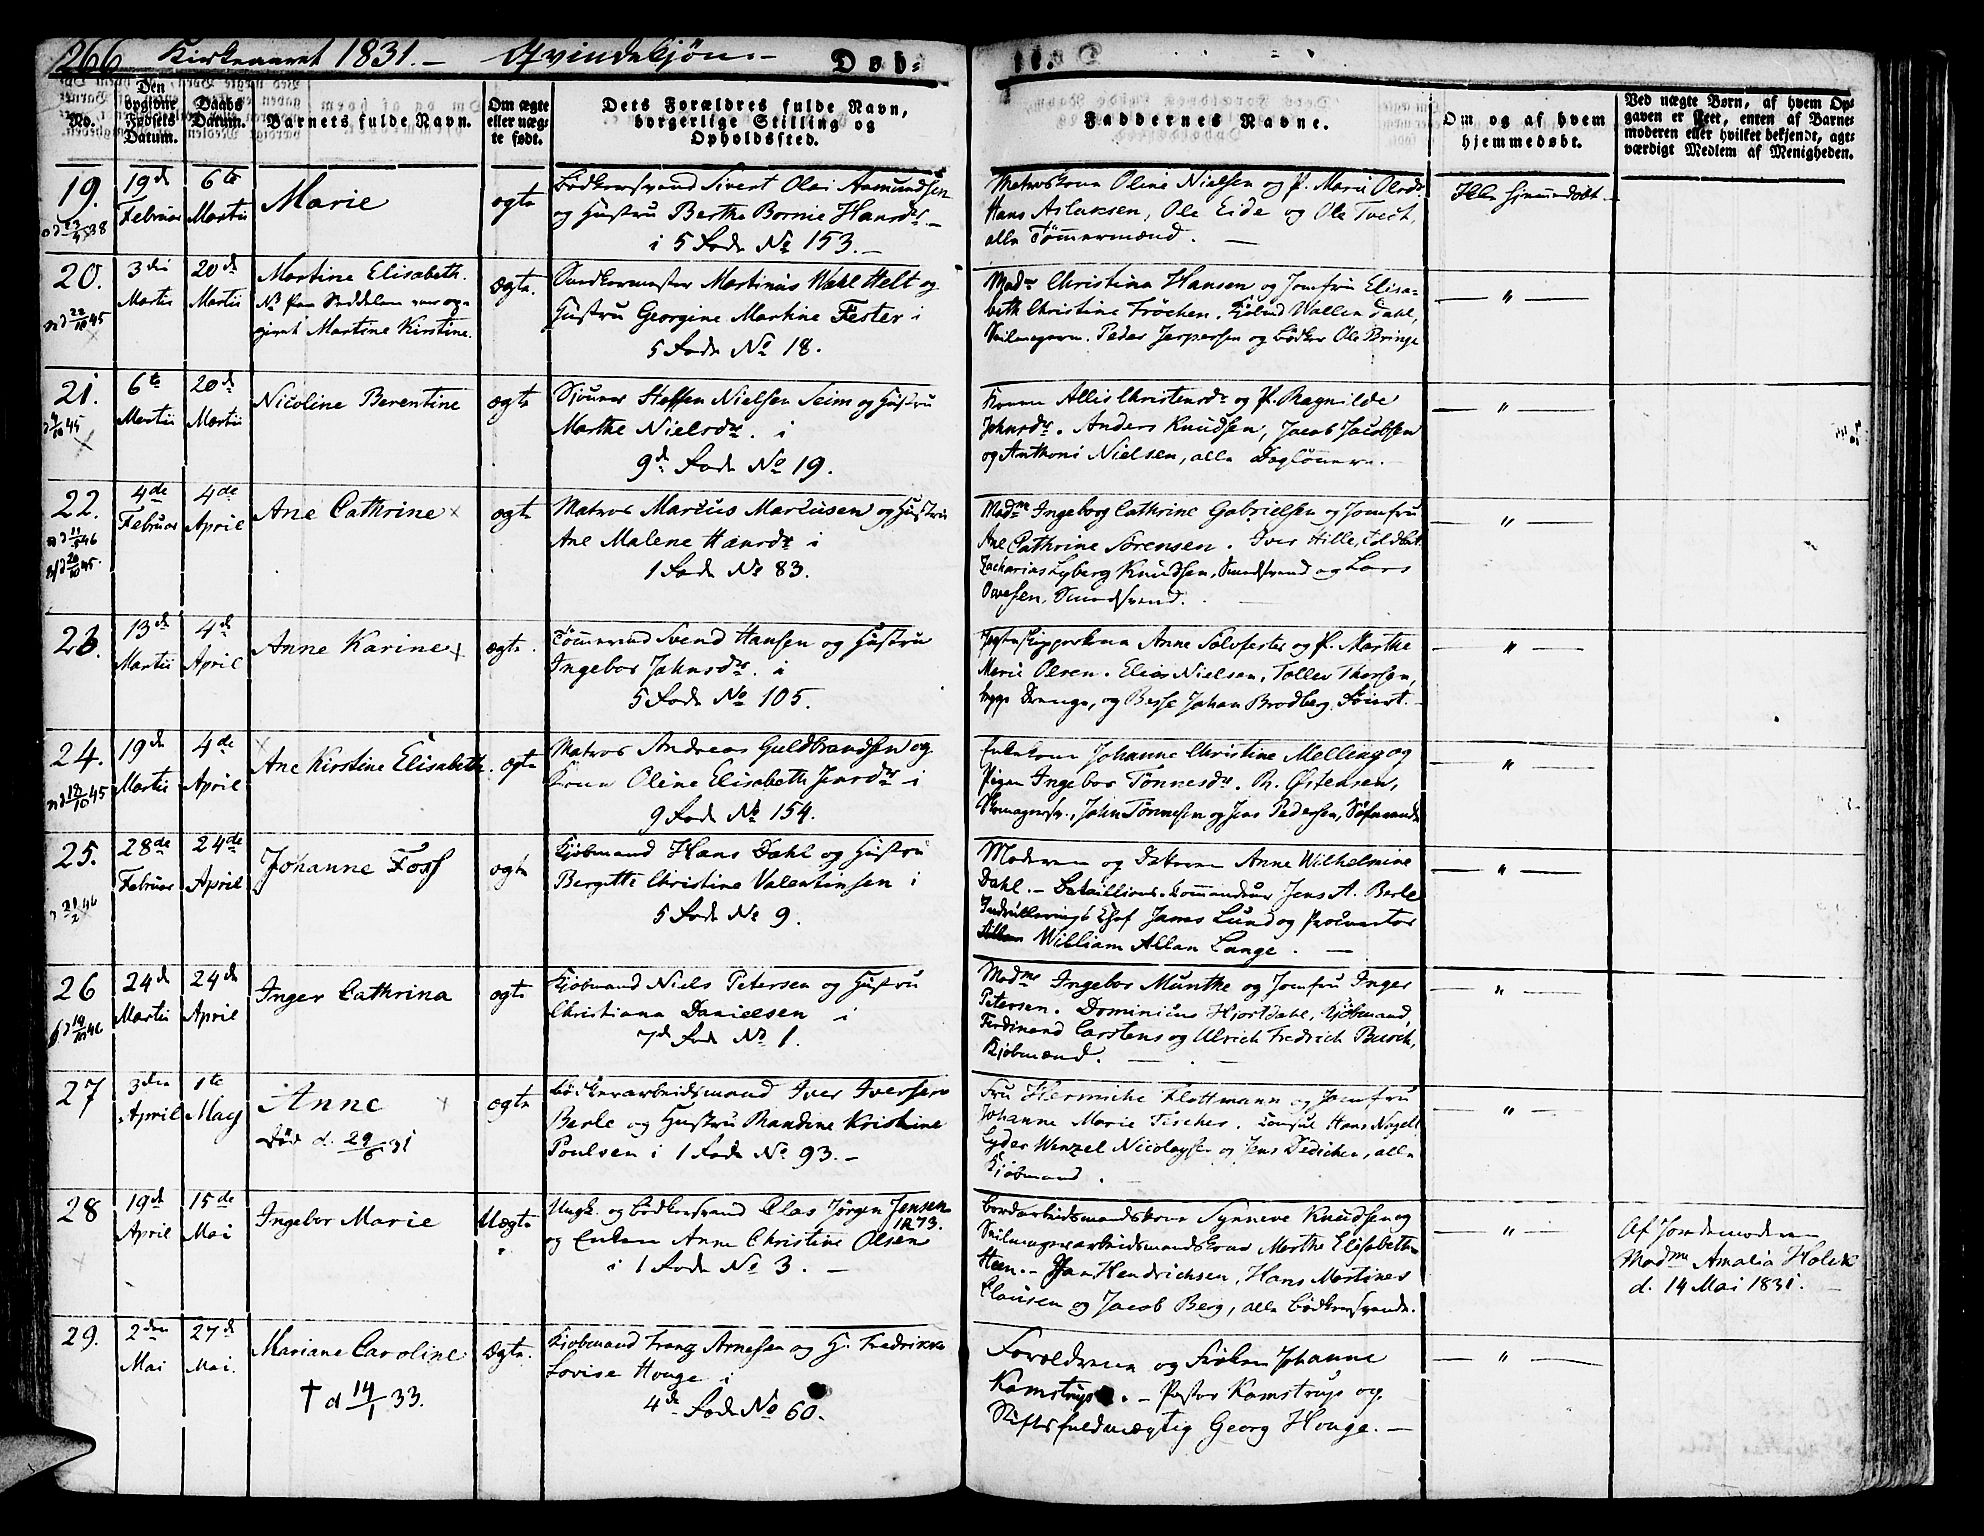 266 Kirkeaaret 1831.– Qvindekjøn.– Døb-
te.
No.
Den opgivne Fødsels Datum.
Daabs Datum.
Barnets fulde Navn.
Om ægte eller uægte født.
Dets Forældres fulde Navn, borgerlige Stilling og Opholdssted.
Faddernes Navne.
Om og af hvem hjemmedøbt.
Ved uægte Børn, af hvem Opgaven er skeet, enten af Barnemoderen eller hvilket bekjendt, agtværdigt Medlem af Menigheden.
19.
19d Februar
6te Martii
Marie
ægte
Bødkersvend Sivert Olai Aamundsen
og Hustru Berthe Hansdr –
i 5 Rode No 153.–
Matroskone Oline Nielsen og P. Marie Olsdr
Hans Aslaksen, Ole Eide og Ole Tveit,
alle Tømmermænd. –
Ikke hjemmedøbt –
20.
3die Martii
20de Martii
Martine Elisabeth.
givet Martine Kirstine.
ægte.
Martinus Wahl Helt og
Hustru Georgine Martine Fester i
5 Rode No 18.
Madm Christina Hansen og Jomfru Elisa-
beth Christine Frøchen.
Seilmagerm. Peder Jespersen og Bødker Ole Bringe
— " —
21.
6te Martii
20de Martii
Nicoline Berentine
ægte
Steffen Nielsen Seim og Hustru
Marthe Nielsdr. i
9de Rode No 19.
Konen Allis Christensdr og P. Ragnilde
Johnsdr. Anders Knudsen, Jacob Jacobsen
og Anthoni Nielsen, alle Daglønnere.–
— " —
22.
4de Februar
4de April
Ane Cathrine
ægte
Matros Marcus Marcusen og Hustru
Ane Malene Hansdr i
1 Rode No 83.
Madm Ingeborg Cathrine Gabrielsen og Jomfru
Ane Cathrine Sørensen. Iver Hille,
Zacharias Lyberg Knudsen, Smedsvend og Lars
Ovesen, Smedsvend.
— " —
23.
13de Martii
4de April
Anne Karine
ægte.
Tømmermd Svend Hansen og Hustru
Ingebor Johnsdr. i
5 Rode No 105.
Jagteskipperkone Anne Solvfester og P. Marthe
Marie Olsen. Elias Nielsen, Tollev Thorsen,
og Besse Johan Brodberg.
— " —
24.
19de Martii
4de April
Ane Kirstine Elisabeth.
ægte
Matros Andreas Guldbrandsen og
Kone Oline Elisabeth Jensdr i
9 Rode No 154.
Enkekone Johanne Christine Melling og
Pigen Ingebor Tønnesdr. R. Østensen,
Skomagersv., John Tønnesen og Jens Pedersen, Søfarende
— " —
25.
28de Februar
24de April
Johanne Foss
ægte
Kjøbmand Hans Dahl og Hustru
Bergitte Christine Valentinsen i
5 Rode No 9.
Moderen og Datteren Anne Wilhelmine
Dahl. – Bataillions-Commandeur Jens A. Berle
Indrulleringschef James Lund og Procurator
William Allan Lange. –
— " —
26
24de Martii
24de April
Inger Cathrina
ægte
Kjøbmand Niels Petersen og Hustru
Christiana Danielsen i
7de Rode No 1.
Madme Ingebor Munthe og Jomfru Inger
Petersen. Dominicus Hjortdahl, Kjøbmand
Ferdinand Carstens og Ulrich Fredrich Busch,
Kjøbmænd.
— " —
27
3den April
1te May
Anne
Død d. 29/6 31
ægte
Bødkerarbeidsmand Iver Iversen
Berle og Hustru Randine Kristine
Poulsen i 1 Rode No 93.–
Fru Hermiche Flottmann og Jomfru
Johanne Marie Fischer. Consul Hans
Lyder Wenzel Nicolaysen og Jens Dedichen, alle
Kjøbmænd.
— " —
28
19de April
15de Mai
Ingebor Marie
Uægte
Ungk. og Bødkersvend Clas Jørgen Jensen
1R 73.
og Enken Anne Christine Olsen
i 1 Rode No 3. –
Bordarbeidsmandskone Synneve Knudsen og
Seilmagerarbeidsmandskone Marthe Elisabeth
Heen.– Jan Hendrichsen, Hans Martines
Clausen og Jacob Berg, alle Bødkersvende.
— " —
Af Jordemoderen
Madme Amalia Holck
d. 14 Mai 1831.
29.
2den Mai
27de Mai.
Mariane Caroline
† d 14/1 33.
Ægte.
Kjøbmand Frantz Arnesen og H. Fredrikke
Lovise Houge i
4de Rode No 60.
Forældrene og Frøken Johanne
Kamstrup. – Pastor Kamstrup og
Stiftsfuldmægtig Georg Houge. –
— " —